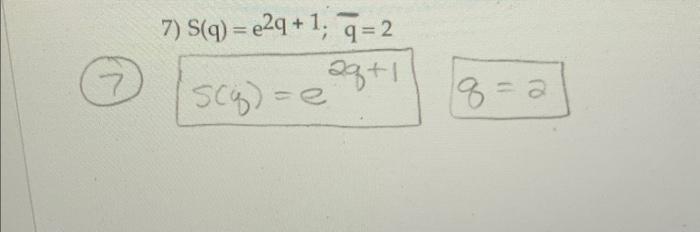 7) S(q) = e^2q + 1; q̅ = 2
7 S(q) = e^2q+1 q = 2